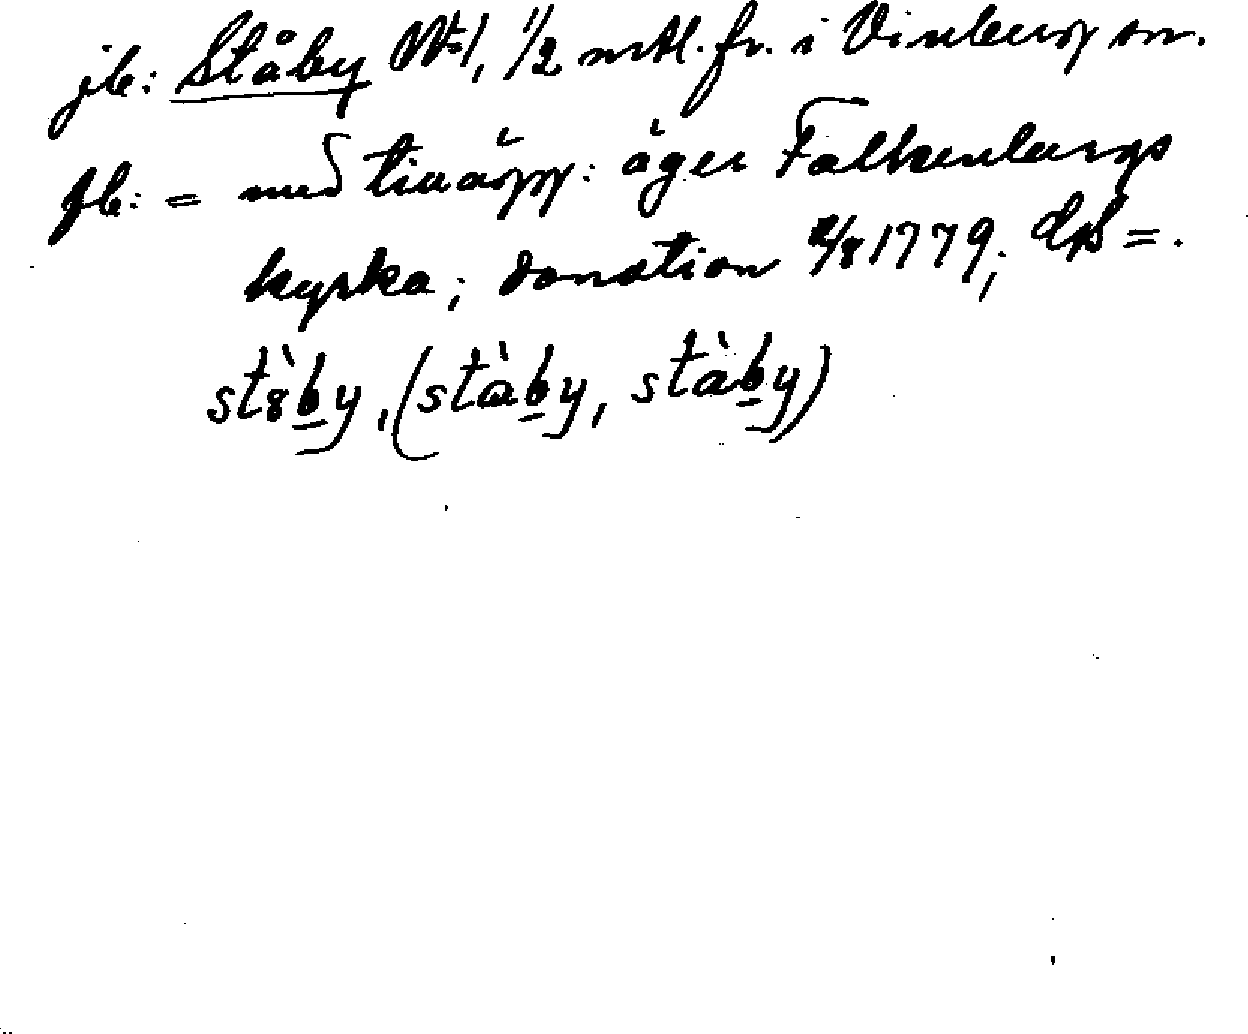 jb: Ståby No 1, 1/2 mtl. fr. i Vinberg sn.
gb: = med tillägg: äger Falkenbergs
kyrka; donation 2/8 1779; dps =.
st8̀by, (stàby, stàby)